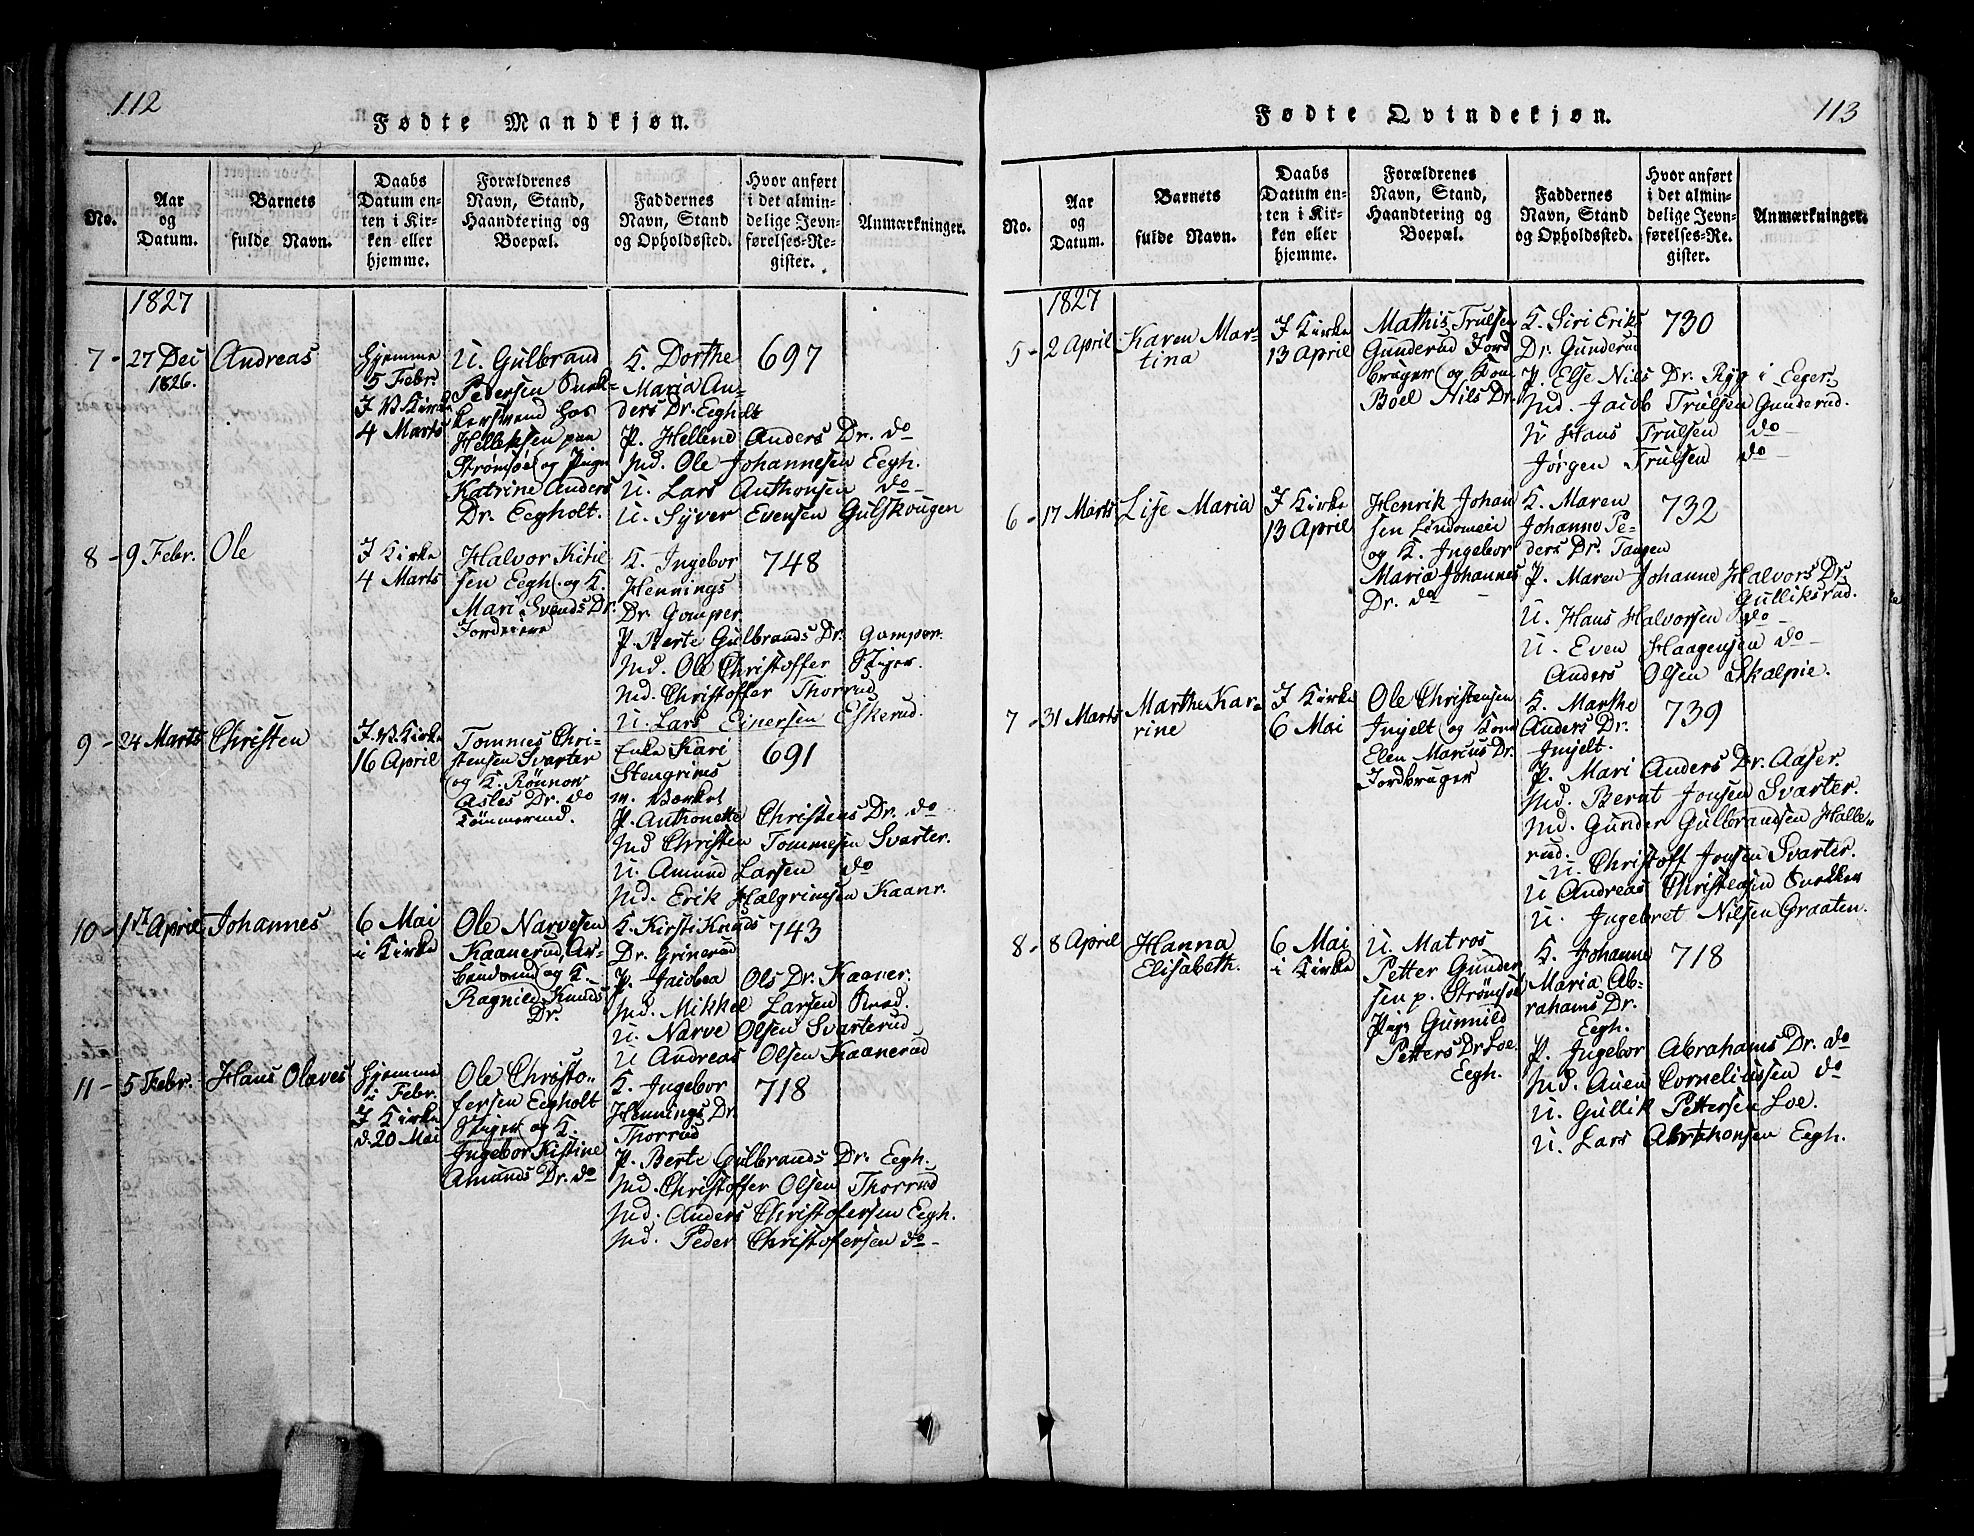 112
Fødte Mandkjøn.
No.
Aar
og
Datum.
Barnets
fulde Navn.
Daabs
Datum en-
ten i Kir-
ken eller
hjemme.
Forældrenes
Navn, Stand,
Haandtering og
Boepæl.
Faddernes
Navn, Stand
og Opholdssted.
Hvor anført
i det almin-
delige Jevn-
førelses-Re-
gister.
Anmærkninger.
1827
7 - 27 Dec
1826.
Andreas
hjemme
5 Febr.
I B Kirke
4 Marts
U. Gulbrand
Pedersen
hos
Helleksen paa
Strømsøe og Pige
Katrine Anders
Dr. Eegholt.
K. Dorthe
Maria An-
ders Dr. Eegholt
P. Hellene Anders Dr. do
Md. Ole Johannesen Eegh.
U. Lars Anthonsen do
U. Syver Evensen Gulskougen
697
8 - 9 Febr.
Ole
I Kirke
4 Marts
Halvor Kitil
sen Eegh. og K.
Mari Svends Dr.
Jordeiere
K. Ingebor
Hennings
Dr. Gomper
P. Berte Gulbrands Dr. Gomper.
Md. Ole Christoffer Stiger.
Md. Christoffer Thorrud
U. Lars Einersen Eskerud.
748
9 - 24 Marts
Christen
I B Kirke
16 April
Tommes Chri-
stensen Svarter
og K. Rönnow
Asles Dr. do
Tömmermd.
Enke Kari
Stengrims
v. Værket
P. Anthonette Christens Dr. do
Md Christen Tommesen Svarter.
U. Amund Larsen do
Md. Erik Halgrimsen Kaanr.
691
10 - 1st April
Johannes
6 Mai
i Kirke
Ole Narvesen
Kaanerud, Ar-
beidsmd og K.
Ragnild Knuds
Dr.
K. Kirsti Knuds
Dr. Grinerud
P. Jacobea Ols Dr. Kaaner.
Md. Mikkel Larsen
U. Narve Olsen Svarterud
U Andreas Olsen Kaanerud
743
11 - 5 Febr.
Hans Olaves
hjemme
i Febr.
I Kirke
d. 20 Mai
Ole Christo-
fersen Eegholt
Stiger og K.
Ingebor Kistine
Amunds Dr. do
K. Ingebor
Hennings Dr.
Thorrud
P. Berte Gulbrands Dr. Eegh.
Md. Christoffer Olsen Thorrud
Md. Anders Christofersen Eegh.
Md. Peder Christofersen do
718
113
Fødte Qvindekjøn.
No.
Aar
og
Datum.
Barnets
fulde Navn.
Daabs
Datum en-
ten i Kir-
ken eller
hjemme.
Forældrenes
Navn, Stand,
Haandtering og
Boepæl.
Faddernes
Navn, Stand
og Opholdssted.
Hvor anført
i det almin-
delige Jevn-
førelses-Re-
gister.
Anmærkninger.
1827
5 - 2 April
Karen Mar-
tina
I Kirke
13 April
Mathis Trulsen
Gunderud Jord
bruger og Kone
Boel Nils Dr.
K. Siri Eriks
Dr. Gunderud
P. Else Nils Dr. Ryg i Eger.
Md. Jacob Trulsen Gunderud.
U Hans Trulsen do
Jørgen Trulsen do
730
6 - 17 Marts
Lise Maria
I Kirke
13 April
Henrik Johan
sen Lindomeie
og K. Ingebor
Maria Johannes
Dr. do
K. Maren
Johanne Pe-
ders Dr. Tangen
P. Maren Johanne Halvors Dr.
Gulliksrud.
U. Hans Halvorsen do
U. Even Haagensen do
Anders Olsen Skalpie.
732
7 - 31 Marts
Marthe Kar-
rine
I Kirke
6 Mai
Ole Christensen
Injelt og Kone
Elen Marcus Dr.
Jordbruger
K. Marthe
Anders Dr.
Injelt.
P. Mari Anders Dr. Aaser.
Md. Bernt Jonsen Svarter.
Md. Gunder Gulbrandsen Halle-
rud.
U. Christoff Jonsen Svarter.
U Andreas Christensen
U. Ingebret Nilsen Graaten.
739
8 - 8 April
Hanna
Elisabeth.
6 Mai
i Kirke
U. Matros
Petter Gunder
sen p. Strömsøe
Pige Gunnild
Petters Dr Loe.
Eegh.
K. Johanne
Maria Ab-
rahams Dr.
Eegh.
P. Ingebor Abrahams Dr. do
Md. Auen Corneliussen do
U. Gullik Pettersen Loe.
U. Lars Abrahamsen Eegh.
718